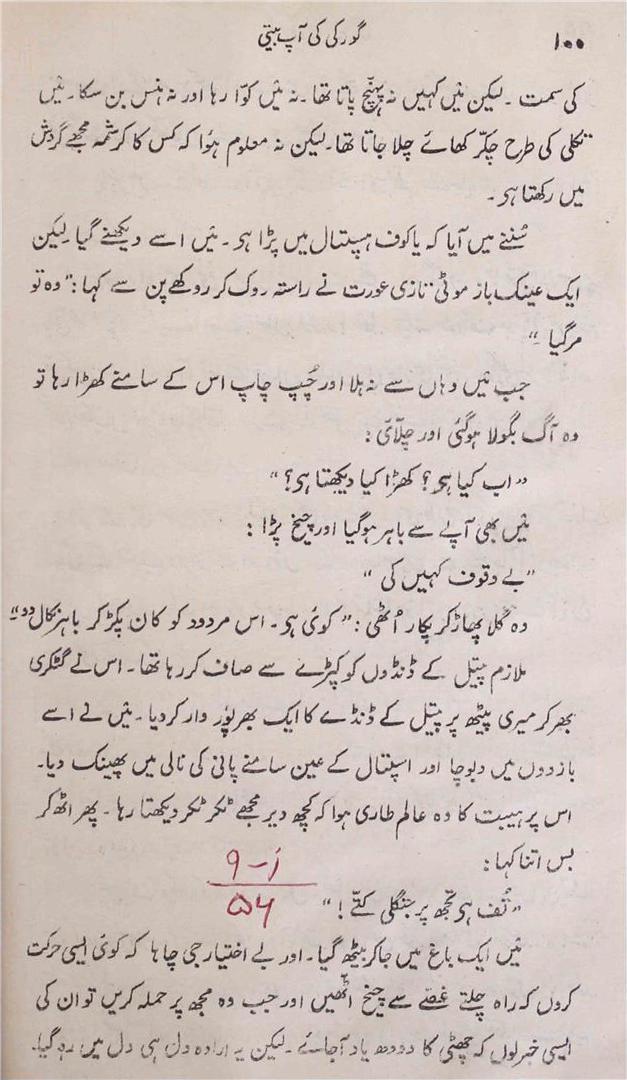 ۱۰۰
گورکی کی آپ بیتی
کی سمت ۔ لیکن مَیں کہیں نہ پہنچ پاتا تھا ۔ نہ مَیں کوّا رہا اور نہ ہنس بن سکا ۔ مَیں
تکلی کی طرح چکّر کھائے چلا جاتا تھا ۔ لیکن نہ معلوم ہُوا کہ کس کا کرشمہ مجھے گردش
میں رکھتا ہی ۔
سُننے میں آیا کہ یاکوف ہسپتال میں پڑا ہی ۔ مَیں اسے دیکھنے گیا لیکن
ایک عینک باز موٹی تازی عورت نے راستہ روک کر روکھے پن سے کہا : ” وہ تو
مرگیا ۔“
جب مَیں وہاں سے نہ ہلا اور چُپ چاپ اس کے سامنے کھڑا رہا تو
وہ آگ بگولا ہوگئی اور چِلّائی :
” اب کیا ہی ؟ کھڑا کیا دیکھتا ہی ؟ “
مَیں بھی آپے سے باہر ہوگیا اور چیخ پڑا :
” بے وقوف کہیں کی “
وہ گلا پھاڑ کر پکار اُٹھی : ” کوئی ہی ۔ اس مردود کو کان پکڑ کر باہر نکال دو ۔“
ملازم پیتل کے ڈنڈوں کو کپڑے سے صاف کر رہا تھا ۔ اس نے گٹکری
بھر کر میری پیٹھ پر پیتل کے ڈنڈے کا ایک بھرپُور وار کر دیا ۔ مَیں نے اسے
بازووں میں دبوچا اور اسپتال کے عین سامنے پانی کی نالی میں پھینک دیا ۔
اس پر ہیبت کا وہ عالم طاری ہوا کہ کچھ دیر مجھے ٹکر ٹکر دیکھتا رہا ۔ پھر اٹھ کر
بس اتنا کہا :
ز – ۹
۵۶
” تُف ہی تجھ پر جنگلی کتّے ! “
مَیں ایک باغ میں جاکر بیٹھ گیا ۔ اور بے اختیار جی چاہا کہ کوئی ایسی حرکت
کروں کہ راہ چلتے غصّے سے چیخ اٹھیں اور جب وہ مجھ پر حملہ کریں تو ان کی
ایسی خبر لوں کہ چھٹی کا دودھ یاد آجائے ۔ لیکن یہ ارادہ دل ہی دل میں رہ گیا ۔